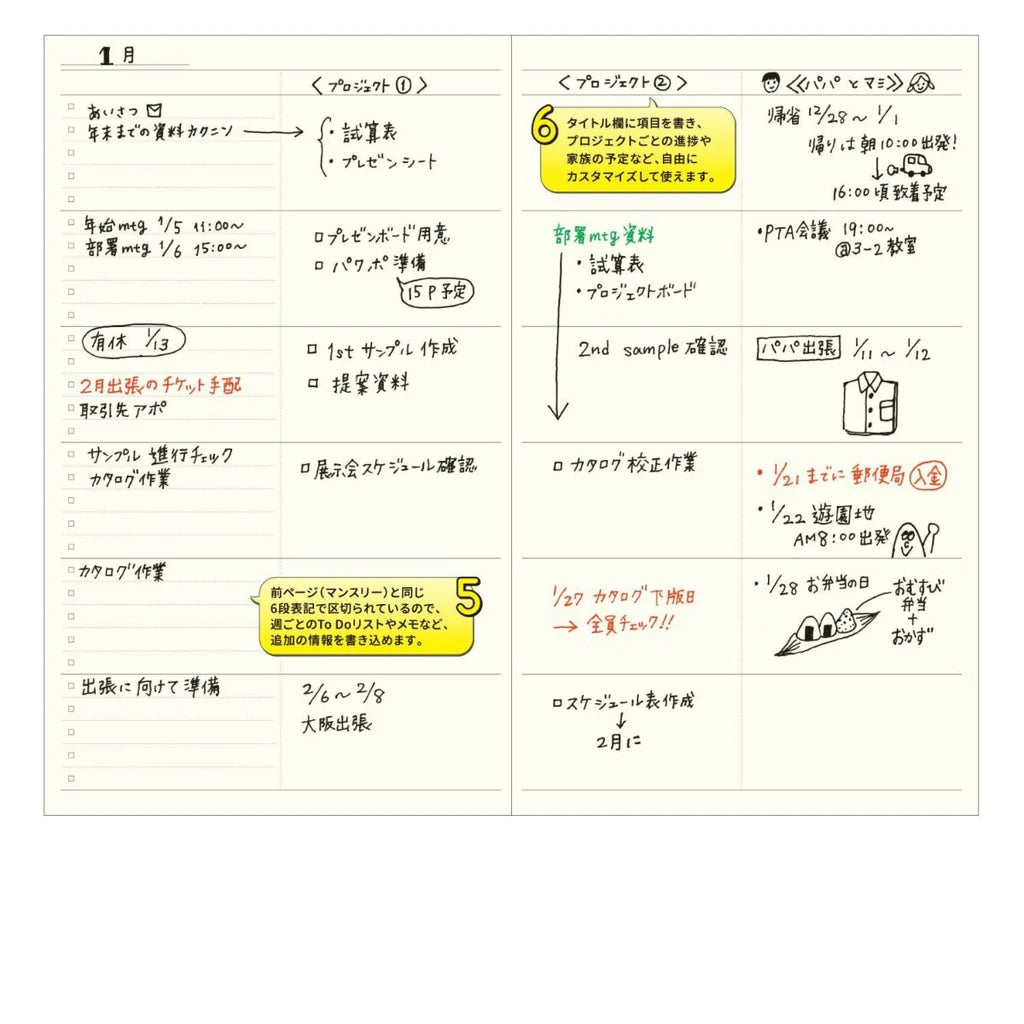 1月
あいさつ
年末までの資料カクニン
年始mtg 1/5 11:00~
部署mtg 1/6 15:00~
有休 1/13
2月出張のチケット手配
取引先アポ
サンプル進行チェック
カタログ作業
カタログ作業
出張に向けて準備
<プロジェクト①>
・試算表
・プレゼンシート
□プレゼンボード用意
□パワポ準備
15P予定
□1stサンプル作成
□提案資料
□展示会スケジュール確認
5
前ページ(マンスリー)と同じ
6段表記で区切られているので、
週ごとのTo Doリストやメモなど、
追加の情報を書き込めます。
2/6~2/8
大阪出張
<プロジェクト②>
6
タイトル欄に項目を書き、
プロジェクトごとの進捗や
家族の予定など、自由に
カスタマイズして使えます。
部署mtg資料
・試算表
・プロジェクトボード
2nd sample確認
□カタログ校正作業
1/27 カタログ下版日
→全員チェック!!
□スケジュール表作成
↓
2月に
≪パパとマミ≫
帰省 12/28~1/1
帰りは朝10:00出発!
16:00頃致着予定
・PTA会議 19:00~
@3-2教室
パパ出張 1/11~1/12
・1/21までに郵便局入金
・1/22 遊園地
AM8:00出発
・1/28 お弁当の日
おむすび
弁当
+
おかず